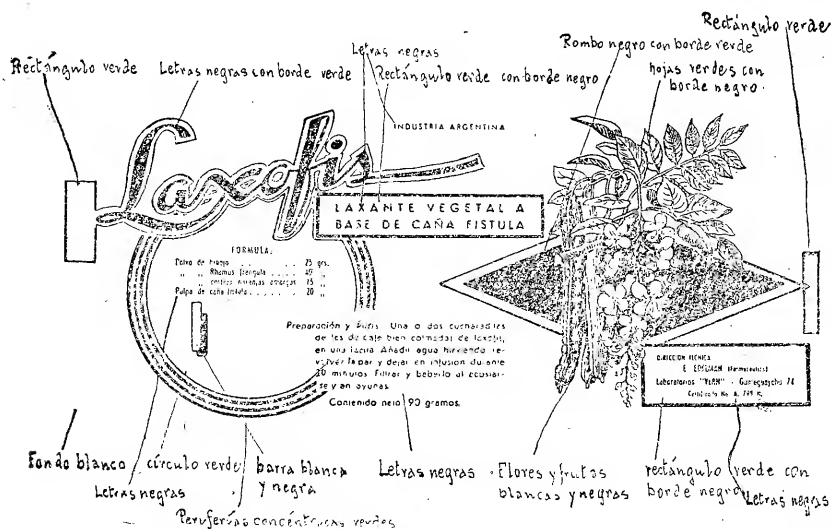 Rectángulo verde
Letras negras con borde verde
Letras negras
Rectángulo verde con borde negro
Rombo negro con borde verde
hojas verdes con
borde negro.
Rectángulo verde
INDUSTRIA ARGENTINA
Laxofis
LAXANTE VEGETAL A
BASE DE CAÑA FISTULA
FORMULA:
Polvo de hinojo 25 grs.
„ „ Rhamus frangula 40 „
„ „ naranjas amargas 15 „
Pulpa de caña fistula 20 „
Preparación y Una o dos cucharaditas
de las de café bien colmadas de laxofis,
en una tacita Añadir agua hirviendo re-
volver tapar y dejar en infusion durante
10 minutos Filtrar y beberlo al acostar-
se y en ayunas
Contenido neto 90 gramos.
DIRECCION TECNICA
E. (farmacéutico)
Laboratorios "YERN" - Gualeguaychú
Certificado No
Fondo blanco
círculo verde
barra blanca
y negra
Letras negras
Flores y frutos
blancas y negras
rectángulo verde con
borde negro
Letras negras
Letras negras
Periferías concéntricas verdes